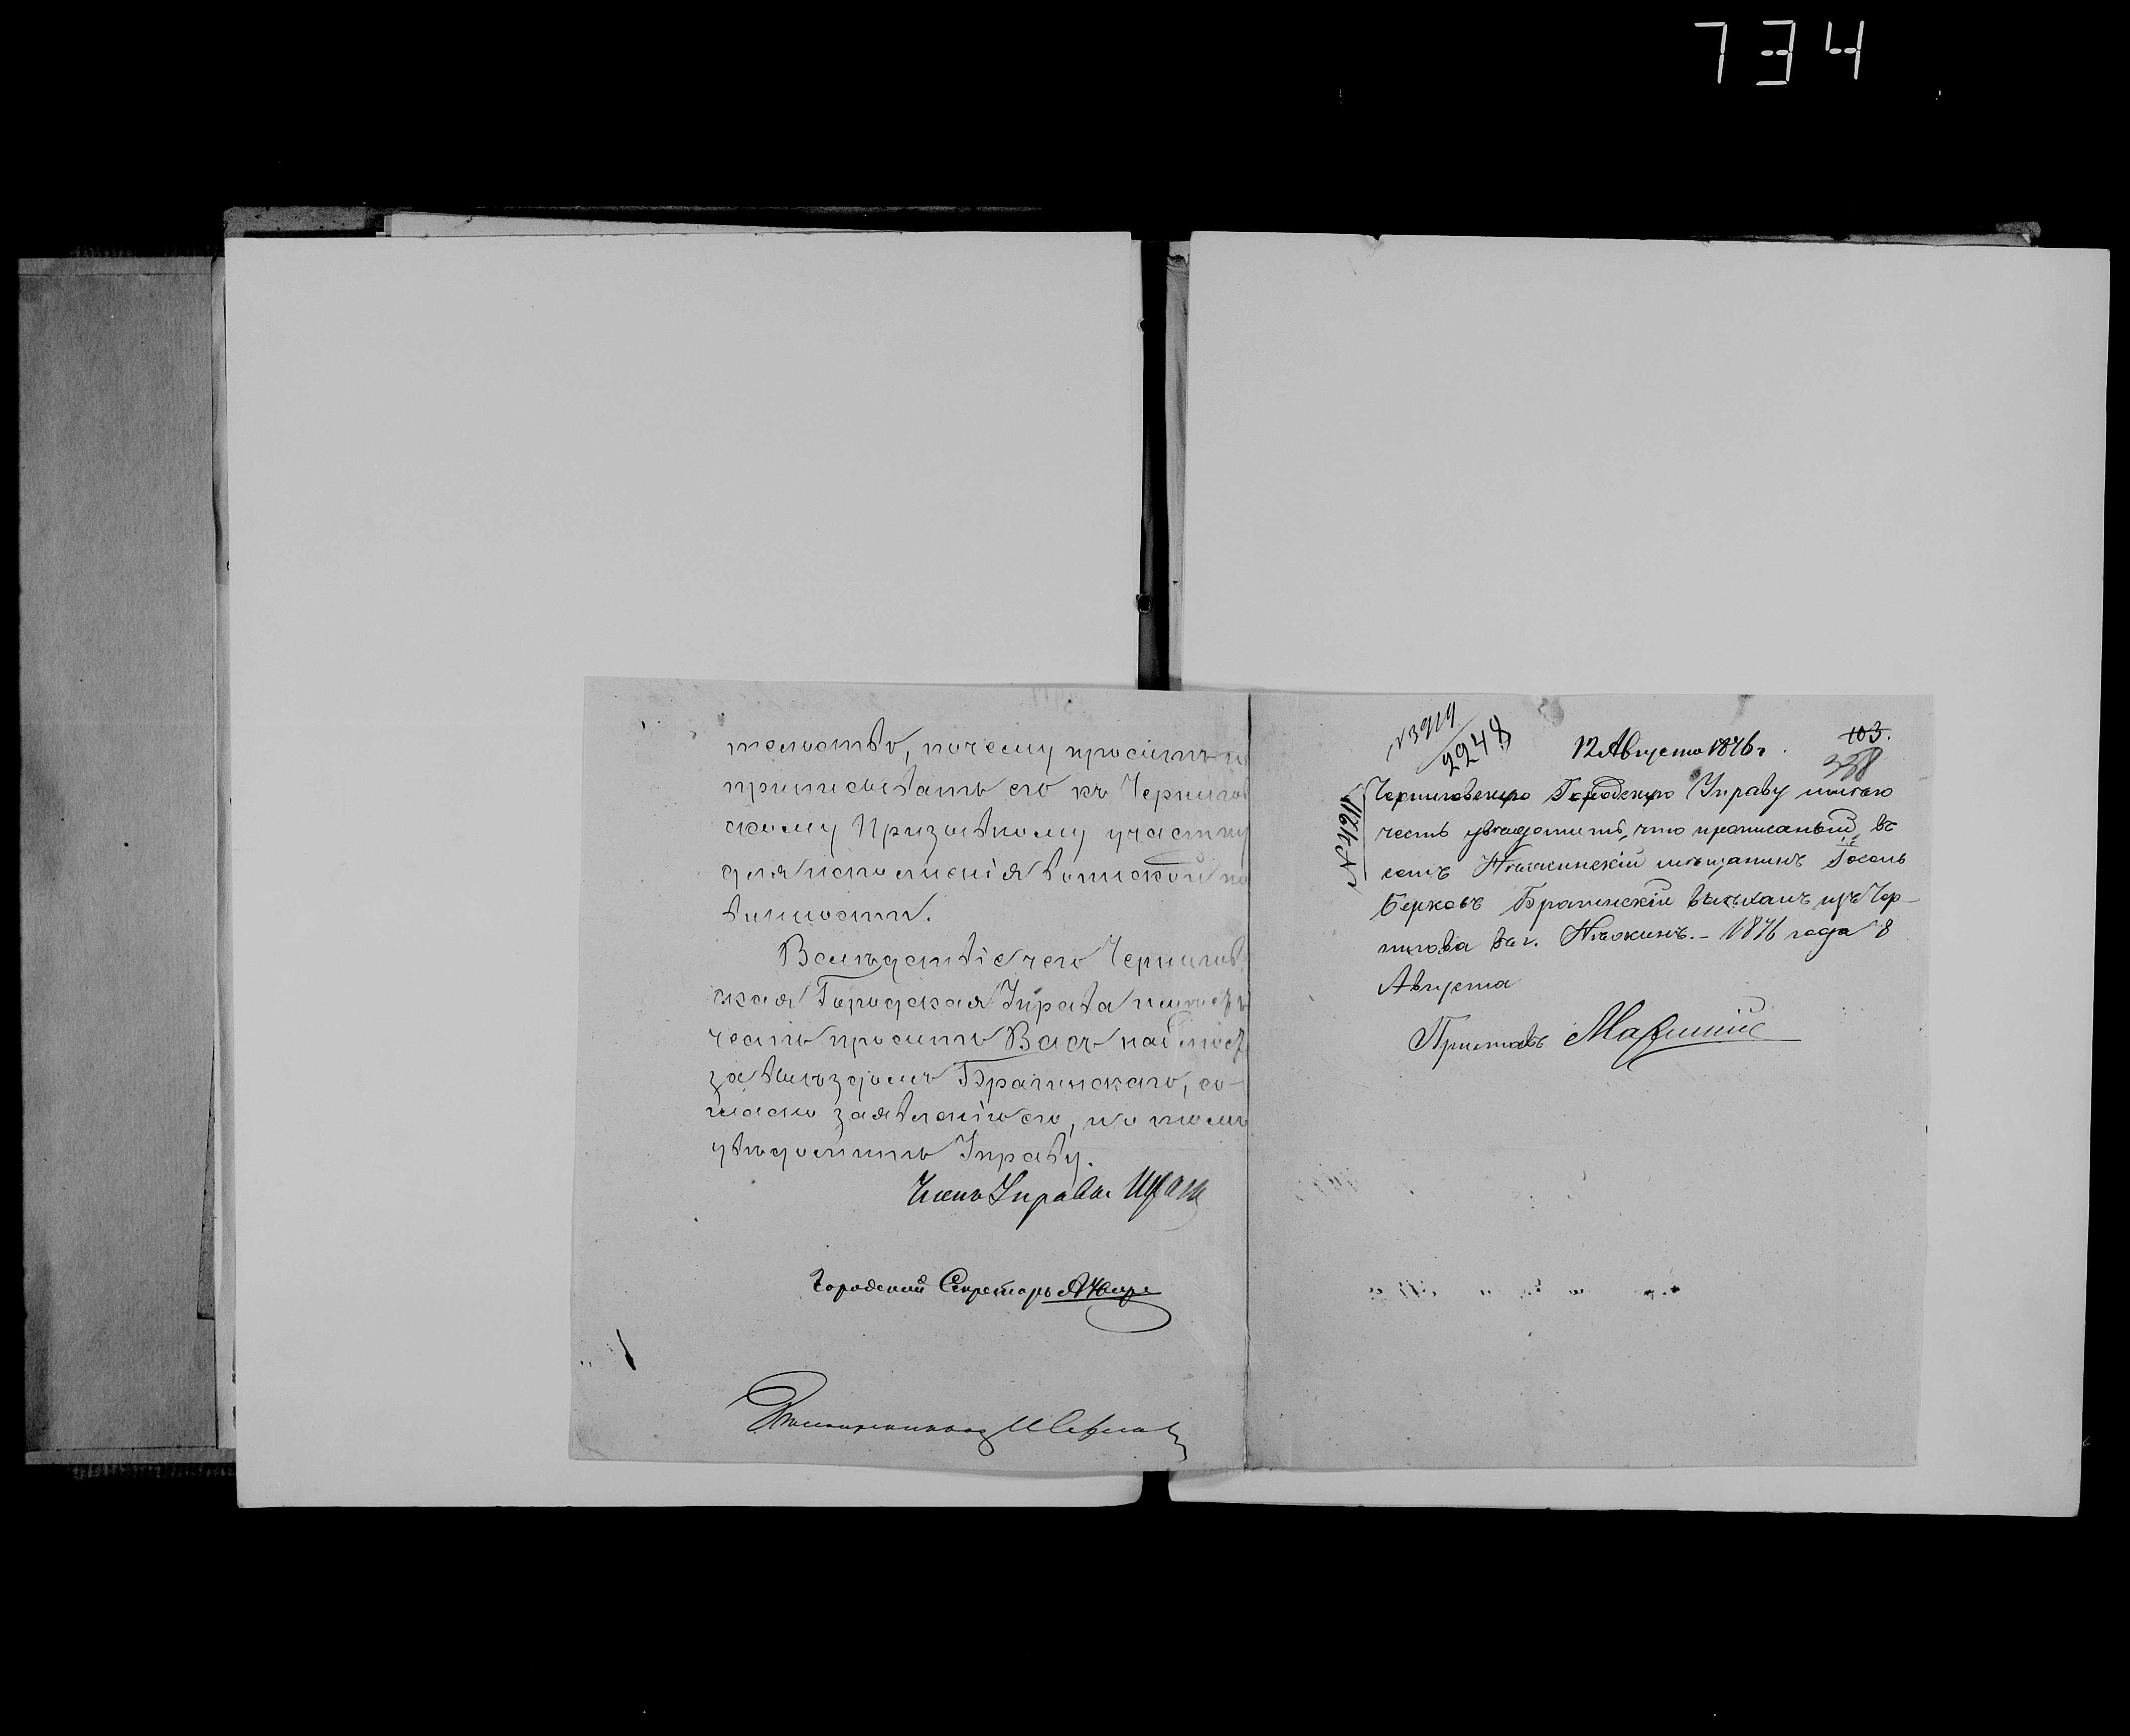 734
тельство, почему проситъ не
приписывать его къ Чернигов
скому Призывному участку
для исполненія воинской по
винности.
Вслѣдствіе чего Чернигов
ская Городская Управа имѣетъ
честь просить Васъ наблюсти
за выѣздомъ Брагинскаго, со-
гласно заявленію его, и о томъ
увѣдомить Управу.
Членъ Управы
Городской Секретарь
№ 3919
2248
12 Августа 1876 г.
103.
338
№ 4911
Черниговскую Городскую Управу имѣю
честь увѣдомить, что прописанный въ
семъ Нѣжинскій мѣщанинъ Іосель
Берковъ Брагинскій выѣхалъ изъ Чер-
нигова въ г. Нѣжинъ. – 1876 года 8
Августа
Приставъ